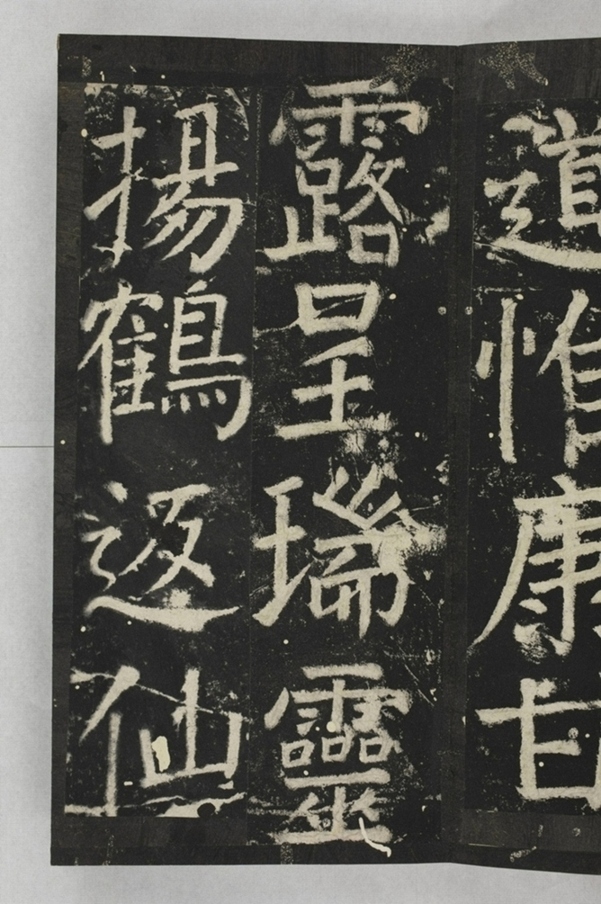 道惟康甘
露呈瑞靈
揚鶴返仙